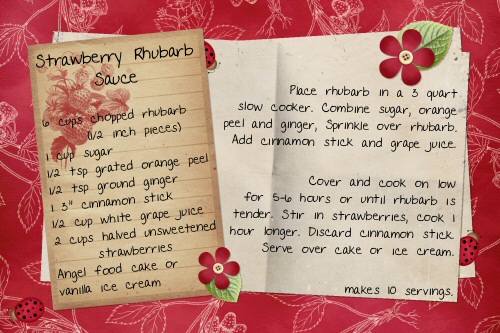 Strawberry Rhubarb
Sauce
6 cups chopped rhubarb
(1/2 inch pieces)
1 cup sugar
1/2 tsp grated orange peel
1/2 tsp ground ginger
1 3" cinnamon stick
1/2 cup white grape juice
2 cups halved unsweetened
strawberries
Angel food cake or
vanilla ice cream
Place rhubarb in a 3 quart
slow cooker. Combine sugar, orange
peel and ginger, Sprinkle over rhubarb.
Add cinnamon stick and grape juice.
Cover and cook on low
for 5-6 hours or until rhubarb is
tender. Stir in strawberries, cook 1
hour longer. Discard cinnamon stick.
Serve over cake or ice cream.
makes 10 servings.